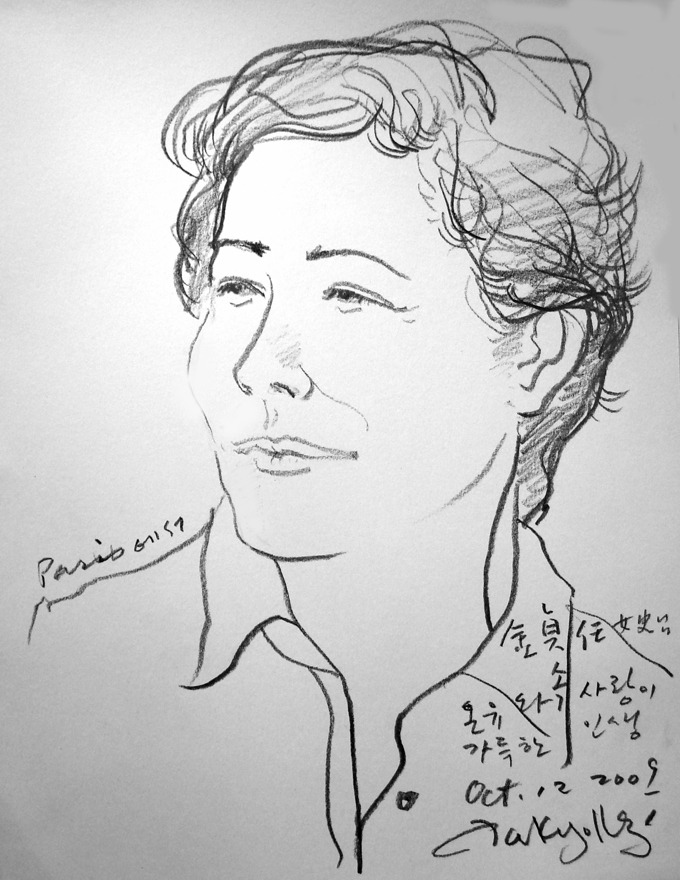 Paris에서
金貞任 女史님
온유와 사랑이
가득한 인생
Oct. 12 2009